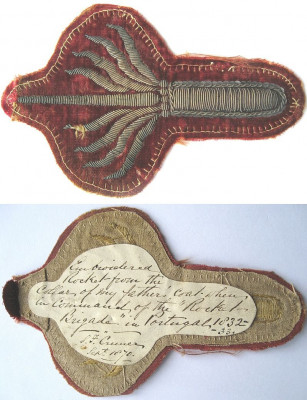 Embroidered
Rocket from the
Collar of my father's coat when
in Command of the "Rocket
Brigade" in Portugal, 1832-
-33.